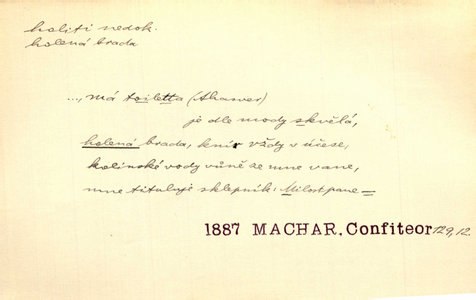 holiti nedok.
holená brada
..., má toiletta (Ahasver)
je dle mody skvělá,
holená brada, knír vždy v účese,
kolínské vody vůně ze mne vane,
mne tituluje sklepník: Milostpane =
1887 MACHAR. Confiteor 129,12.